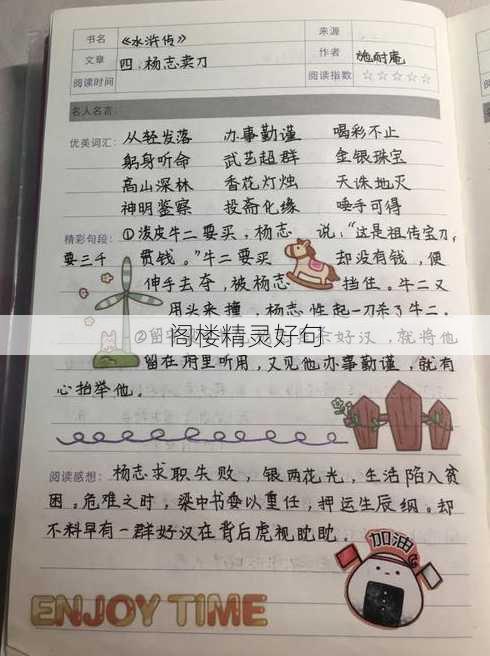 书名 《水浒传》 来源
文章 四.杨志卖刀 作者 施耐庵
阅读时间 阅读指数 ☆☆☆☆☆
名人名言:
优美词汇: 从轻发落 办事勤谨 喝彩不止
躬身听命 武艺超群 金银珠宝
高山深林 香花灯烛 天诛地灭
神明鉴察 投斋化缘 唾手可得
精彩句段: ①泼皮牛二要买，杨志 说，“这是祖传宝刀，
要三千 贯钱。”牛二要买 却没有钱，便
伸手去夺，被杨志 挡住。牛二又
用头来撞，杨志性起一刀杀了牛二。
阁楼精灵好句
②留 杀好汉，就将他
留在府里听用，又见他办事勤谨，就有
心抬举他。
阅读感想: 杨志求职失败，银两花光，生活陷入贫
困。危难之时，梁中书委以重任，押运生辰纲。却
不料早有一群好汉在背后虎视眈眈。
加油
ENJOY TIME